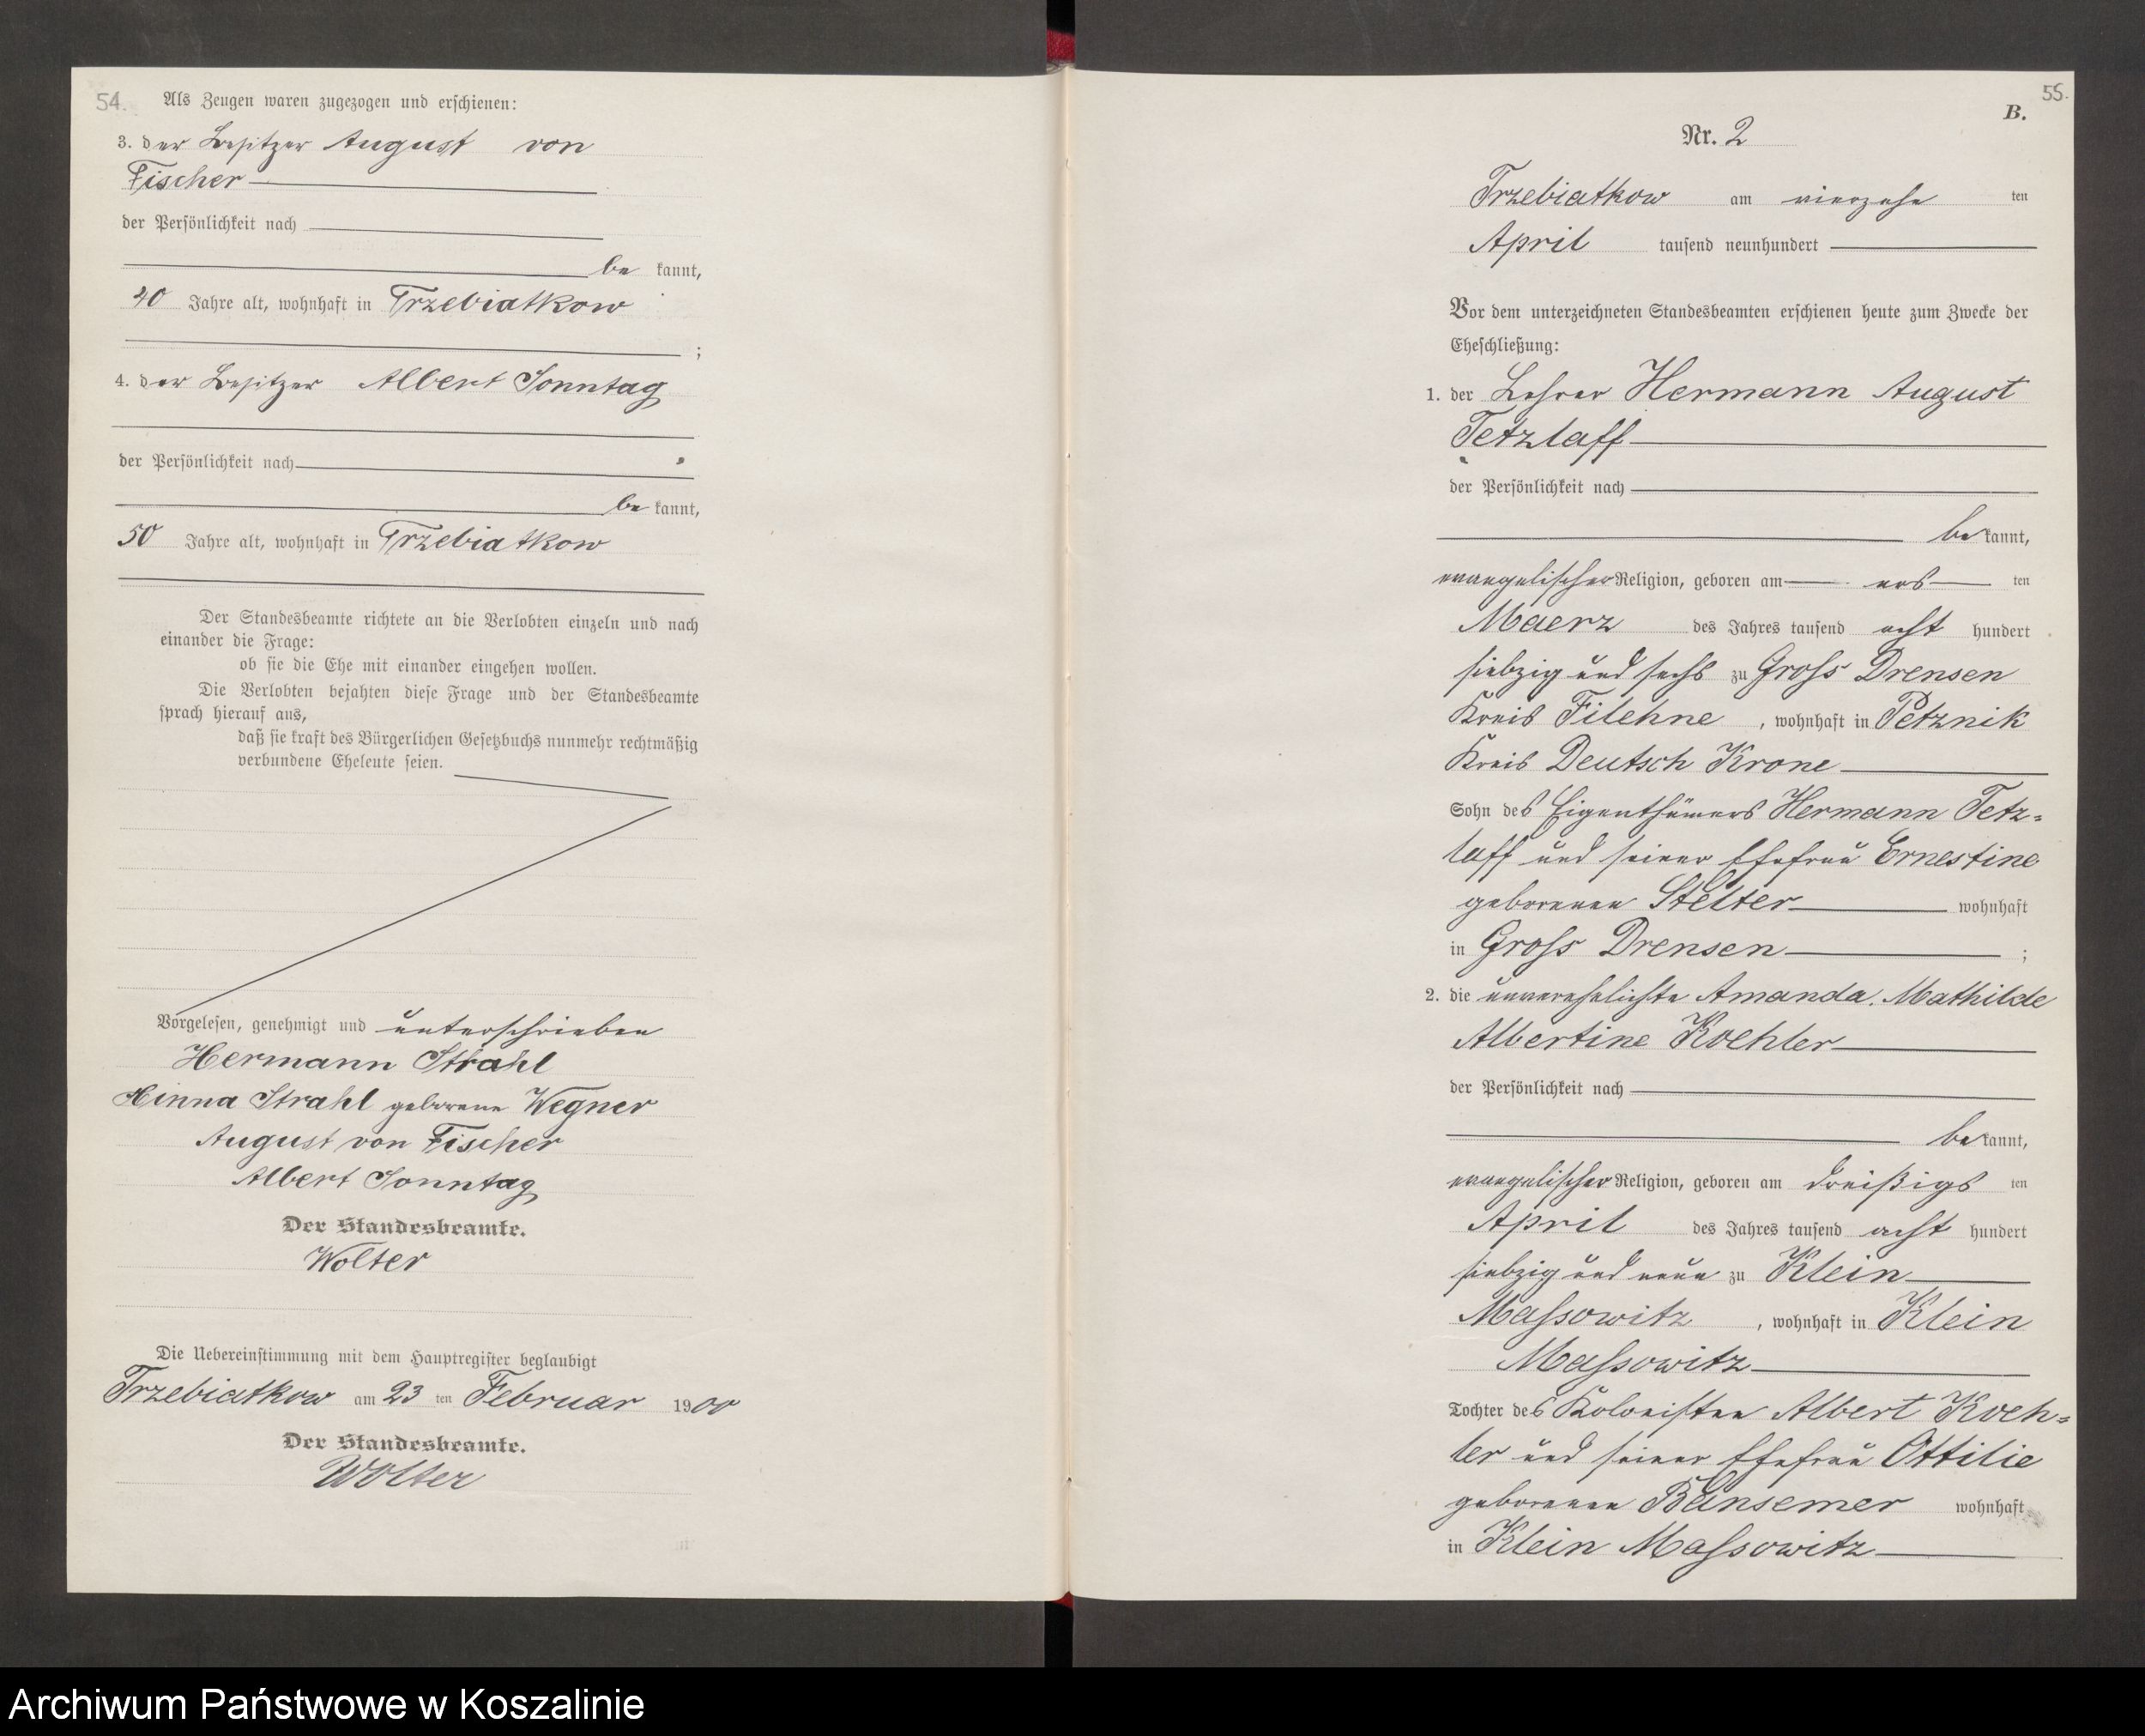 54.
Als Zeugen waren zugezogen und erschienen:
3. der Besitzer August von
Fischer
der Persönlichkeit nach
be kannt,
40 Jahre alt, wohnhaft in Trzebiatkow
;
4. der Besitzer Albert Sonntag
der Persönlichkeit nach
be kannt,
50 Jahre alt, wohnhaft in Trzebiatkow
Der Standesbeamte richtete an die Verlobten einzeln und nach
einander die Frage:
ob sie die Ehe mit einander eingehen wollen.
Die Verlobten bejahten diese Frage und der Standesbeamte
sprach hierauf aus,
daß sie kraft des Bürgerlichen Gesetzbuchs nunmehr rechtmäßig
verbundene Eheleute seien.
Vorgelesen, genehmigt und unterschrieben
Hermann Strahl
Minna Strahl geborene Wegner
August von Fischer
Albert Sonntag
Der Standesbeamte.
Wolter
Die Uebereinstimmung mit dem Hauptregister beglaubigt
Trzebiatkow am 23 ten Februar 1900
Der Standesbeamte.
Wolter
55.
B.
Nr. 2
Trzebiatkow am vierzehn ten
April tausend neunhundert
Vor dem unterzeichneten Standesbeamten erschienen heute zum Zwecke der
Eheschließung:
1. der Lehrer Hermann August
Tetzlaff
der Persönlichkeit nach
be kannt,
evangelischer Religion, geboren am ers ten
Maerz des Jahres tausend acht hundert
siebzig und sechs zu Gross Drensen
Kreis Filehne, wohnhaft in Petznik
Kreis Deutsch Krone
Sohn des Eigenthümers Hermann Tetz-
laff und seiner Ehefrau Ernestine
geborenen Stelter wohnhaft
in Gross Drensen ;
2. die unverehelichte Amanda Mathilde
Albertine Koehler
der Persönlichkeit nach
be kannt,
evangelischer Religion, geboren am dreißigs ten
April des Jahres tausend acht hundert
siebzig und neun zu Klein
Massowitz, wohnhaft in Klein
Massowitz
Tochter des Kolonisten Albert Koeh-
ler und seiner Ehefrau Ottilie
geborenen Bansemer wohnhaft
in Klein Massowitz
Archiwum Państwowe w Koszalinie